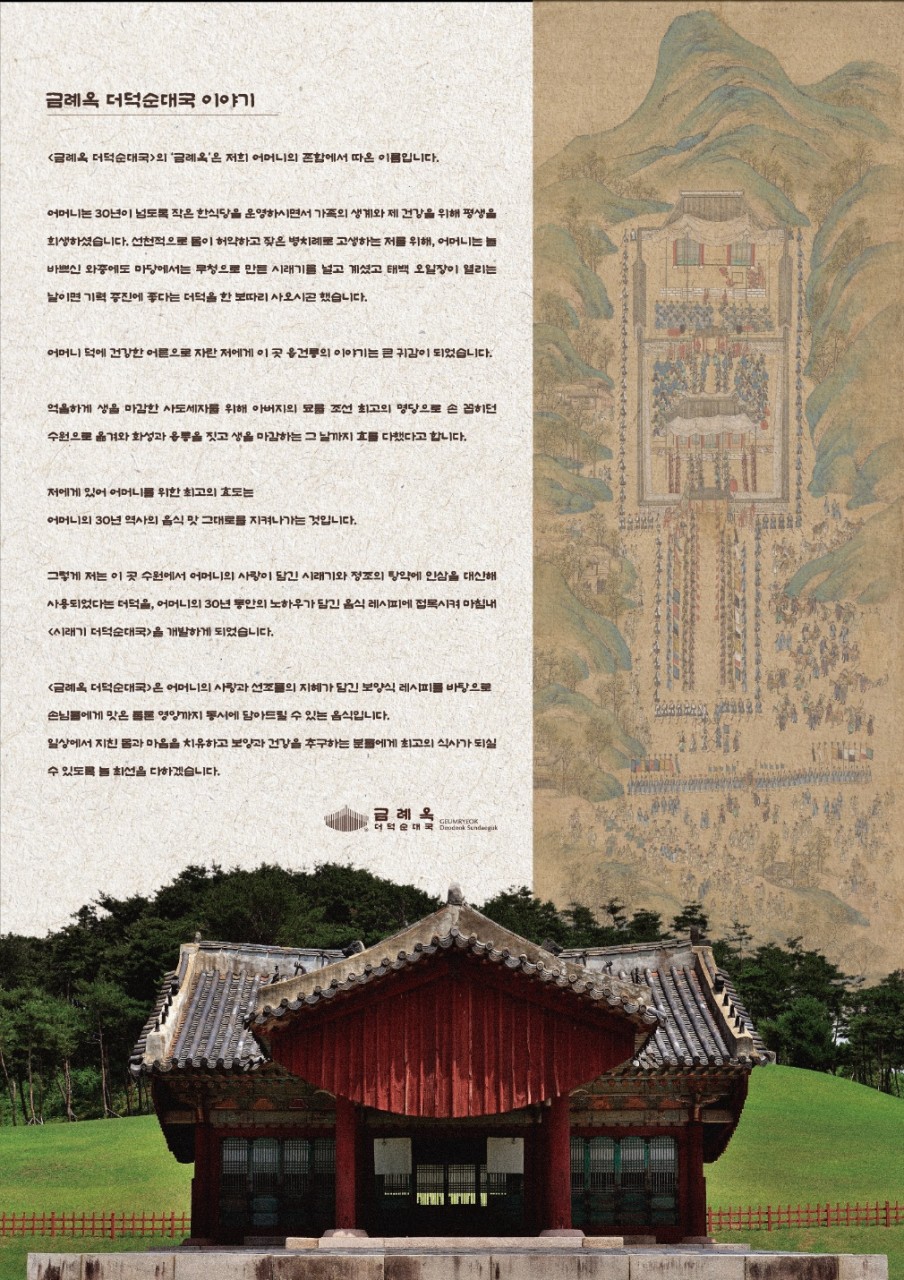 금례옥 더덕순대국 이야기
<금례옥 더덕순대국>의 '금례옥'은 저희 어머니의 존함에서 따온 이름입니다.
어머니는 30년이 넘도록 작은 한식당을 운영하시면서 가족의 생계와 제 건강을 위해 평생을
희생하셨습니다. 선천적으로 몸이 허약하고 잦은 병치레로 고생하는 저를 위해, 어머니는 늘
바쁘신 와중에도 마당에서는 무청으로 만든 시래기를 널고 계셨고 태백 오일장이 열리는
날이면 기력 증진에 좋다는 더덕을 한 보따리 사오시곤 했습니다.
어머니 덕에 건강한 어른으로 자란 저에게 이 곳 융건릉의 이야기는 큰 귀감이 되었습니다.
억울하게 생을 마감한 사도세자를 위해 아버지의 묘를 조선 최고의 명당으로 손 꼽히던
수원으로 옮겨와 화성과 융릉을 짓고 생을 마감하는 그 날까지 효를 다했다고 합니다.
저에게 있어 어머니를 위한 최고의 효도는
어머니의 30년 역사의 음식 맛 그대로를 지켜나가는 것입니다.
그렇게 저는 이 곳 수원에서 어머니의 사랑이 담긴 시래기와 정조의 탕약에 인삼을 대신해
사용되었다는 더덕을, 어머니의 30년 동안의 노하우가 담긴 음식 레시피에 접목시켜 마침내
<시래기 더덕순대국>을 개발하게 되었습니다.
<금례옥 더덕순대국>은 어머니의 사랑과 선조들의 지혜가 담긴 보양식 레시피를 바탕으로
손님들에게 맛은 물론 영양까지 동시에 담아드릴 수 있는 음식입니다.
일상에서 지친 몸과 마음을 치유하고 보양과 건강을 추구하는 분들에게 최고의 식사가 되실
수 있도록 늘 최선을 다하겠습니다.
금례옥
더덕순대국
GEUMRYEOK
Deodeok Sundaeguk